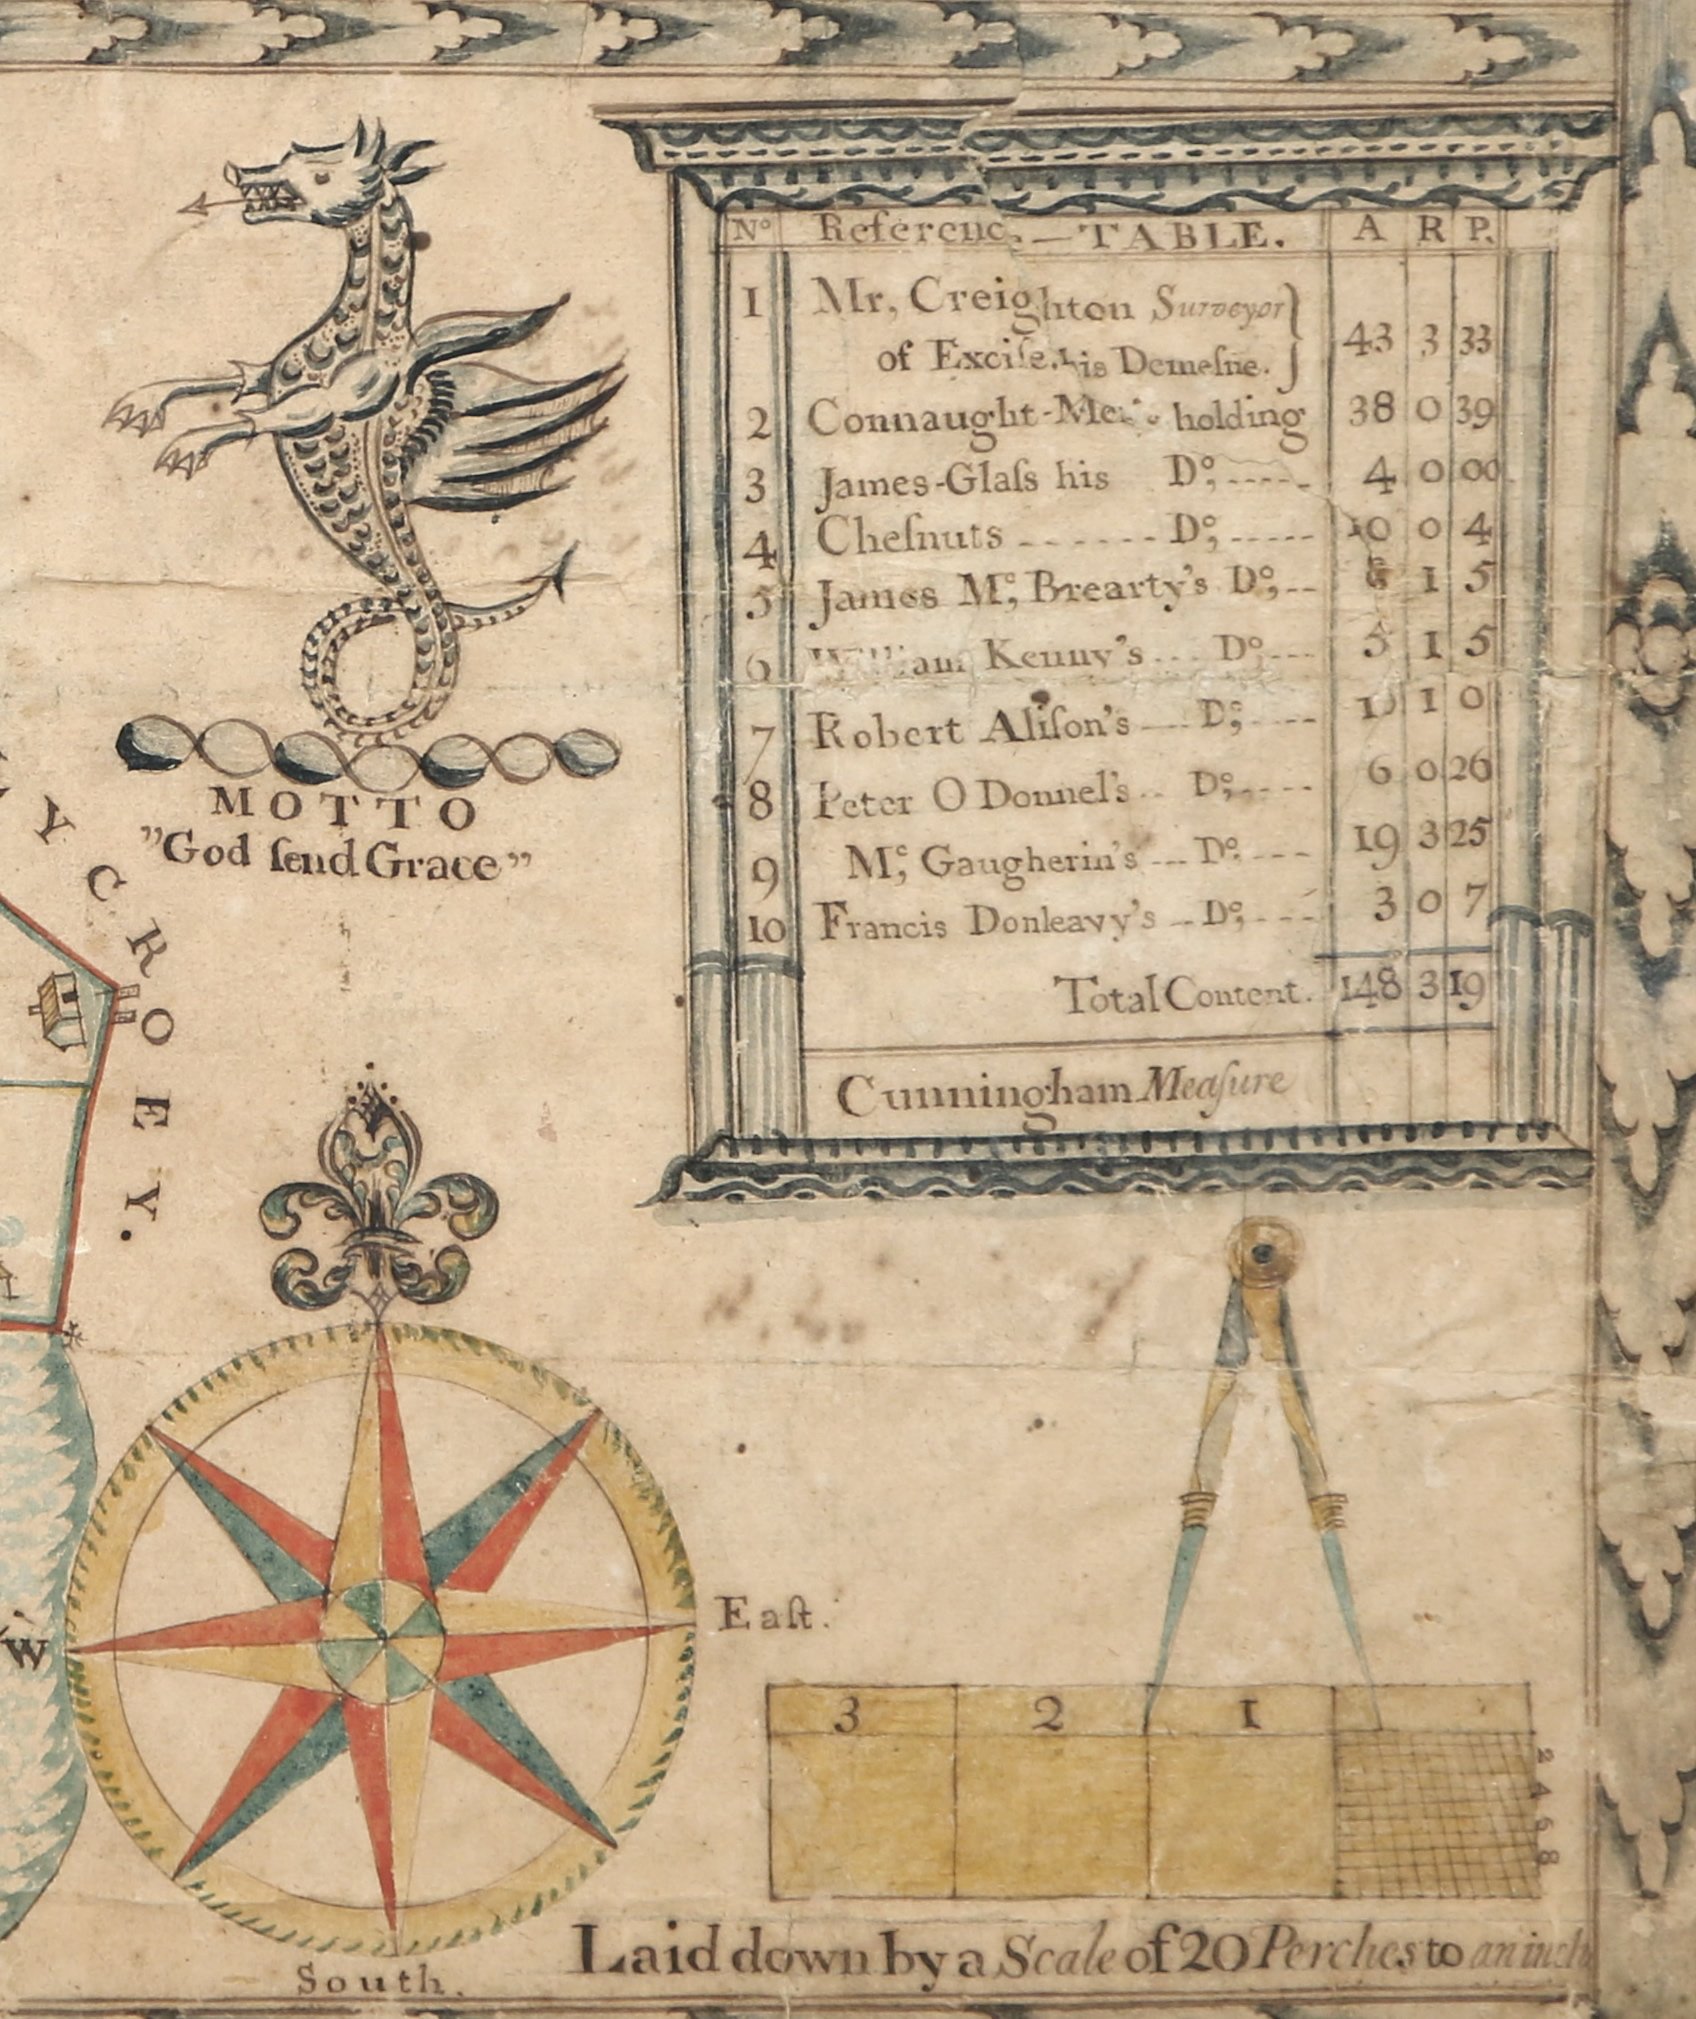 MOTTO
"God ſend Grace"
Y CROEY.
No Referenc — TABLE. A R P.
1 Mr, Creighton Surveyor
of Exciſe. his Demeſne. } 43 3 33
2 Connaught - holding 38 0 39
3 James-Glaſs his Do; ----- 4 0 00
4 Cheſnuts ------ Do; ----- 10 0 4
5 James Mc; Brearty's Do; -- 1 5
6 William Kenny's ... Do --- 5 1 5
7 Robert Aliſon's --- Do; ---- 1 0
8 Peter O Donnel's .. Do; ---- 6 0 26
9 Mc; Gaugherin's --- Do: --- 19 3 25
10 Francis Donleavy's -- Do; ---- 3 0 7
Total Content. 148 3 19
Cunningham Meaſure
W
Eaſt.
South.
3 2 1
2
4
6
8
Laid down by a Scale of 20 Perches to an inch